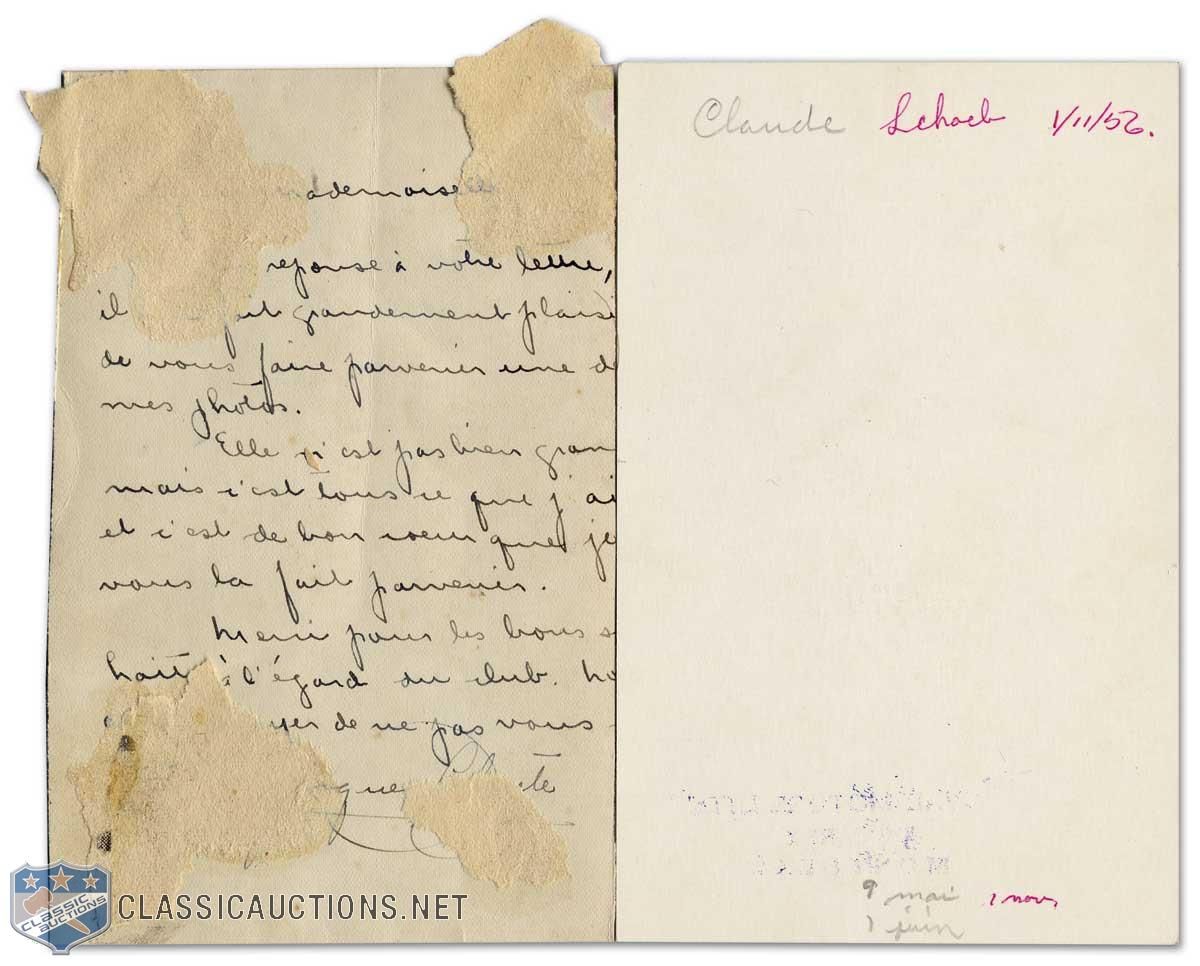 mademoiselle
réponse à votre lettre,
il fait grandement plaisi
de vous faire parvenir une d
mes photos.
Elle n'est pas bien gran
mais c'est tous ce que j'ai
et c'est de bon coeur que je
vous la fait parvenir.
Merci pour les bons s
hait à l'égard du club.
yer de ne pas vous
ques Plante
CLASSIC AUCTIONS
CLASSICAUCTIONS.NET
Claude 1/11/56.
9 mai 1 nov,
1 juin